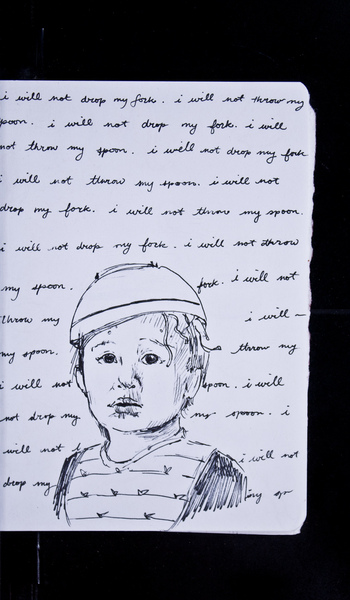 i will not drop my fork. i will not throw my
spoon. i will not drop my fork. i will
not throw my spoon. i will not drop my fork
i will not throw my spoon. i will not
drop my fork. i will not throw my spoon.
i will not drop my fork. i will not throw
my spoon. fork. i will not
throw my i will —
my spoon. throw my
i will not spoon. i will
not drop my my spoon. i
will not i i will not
drop my my sp